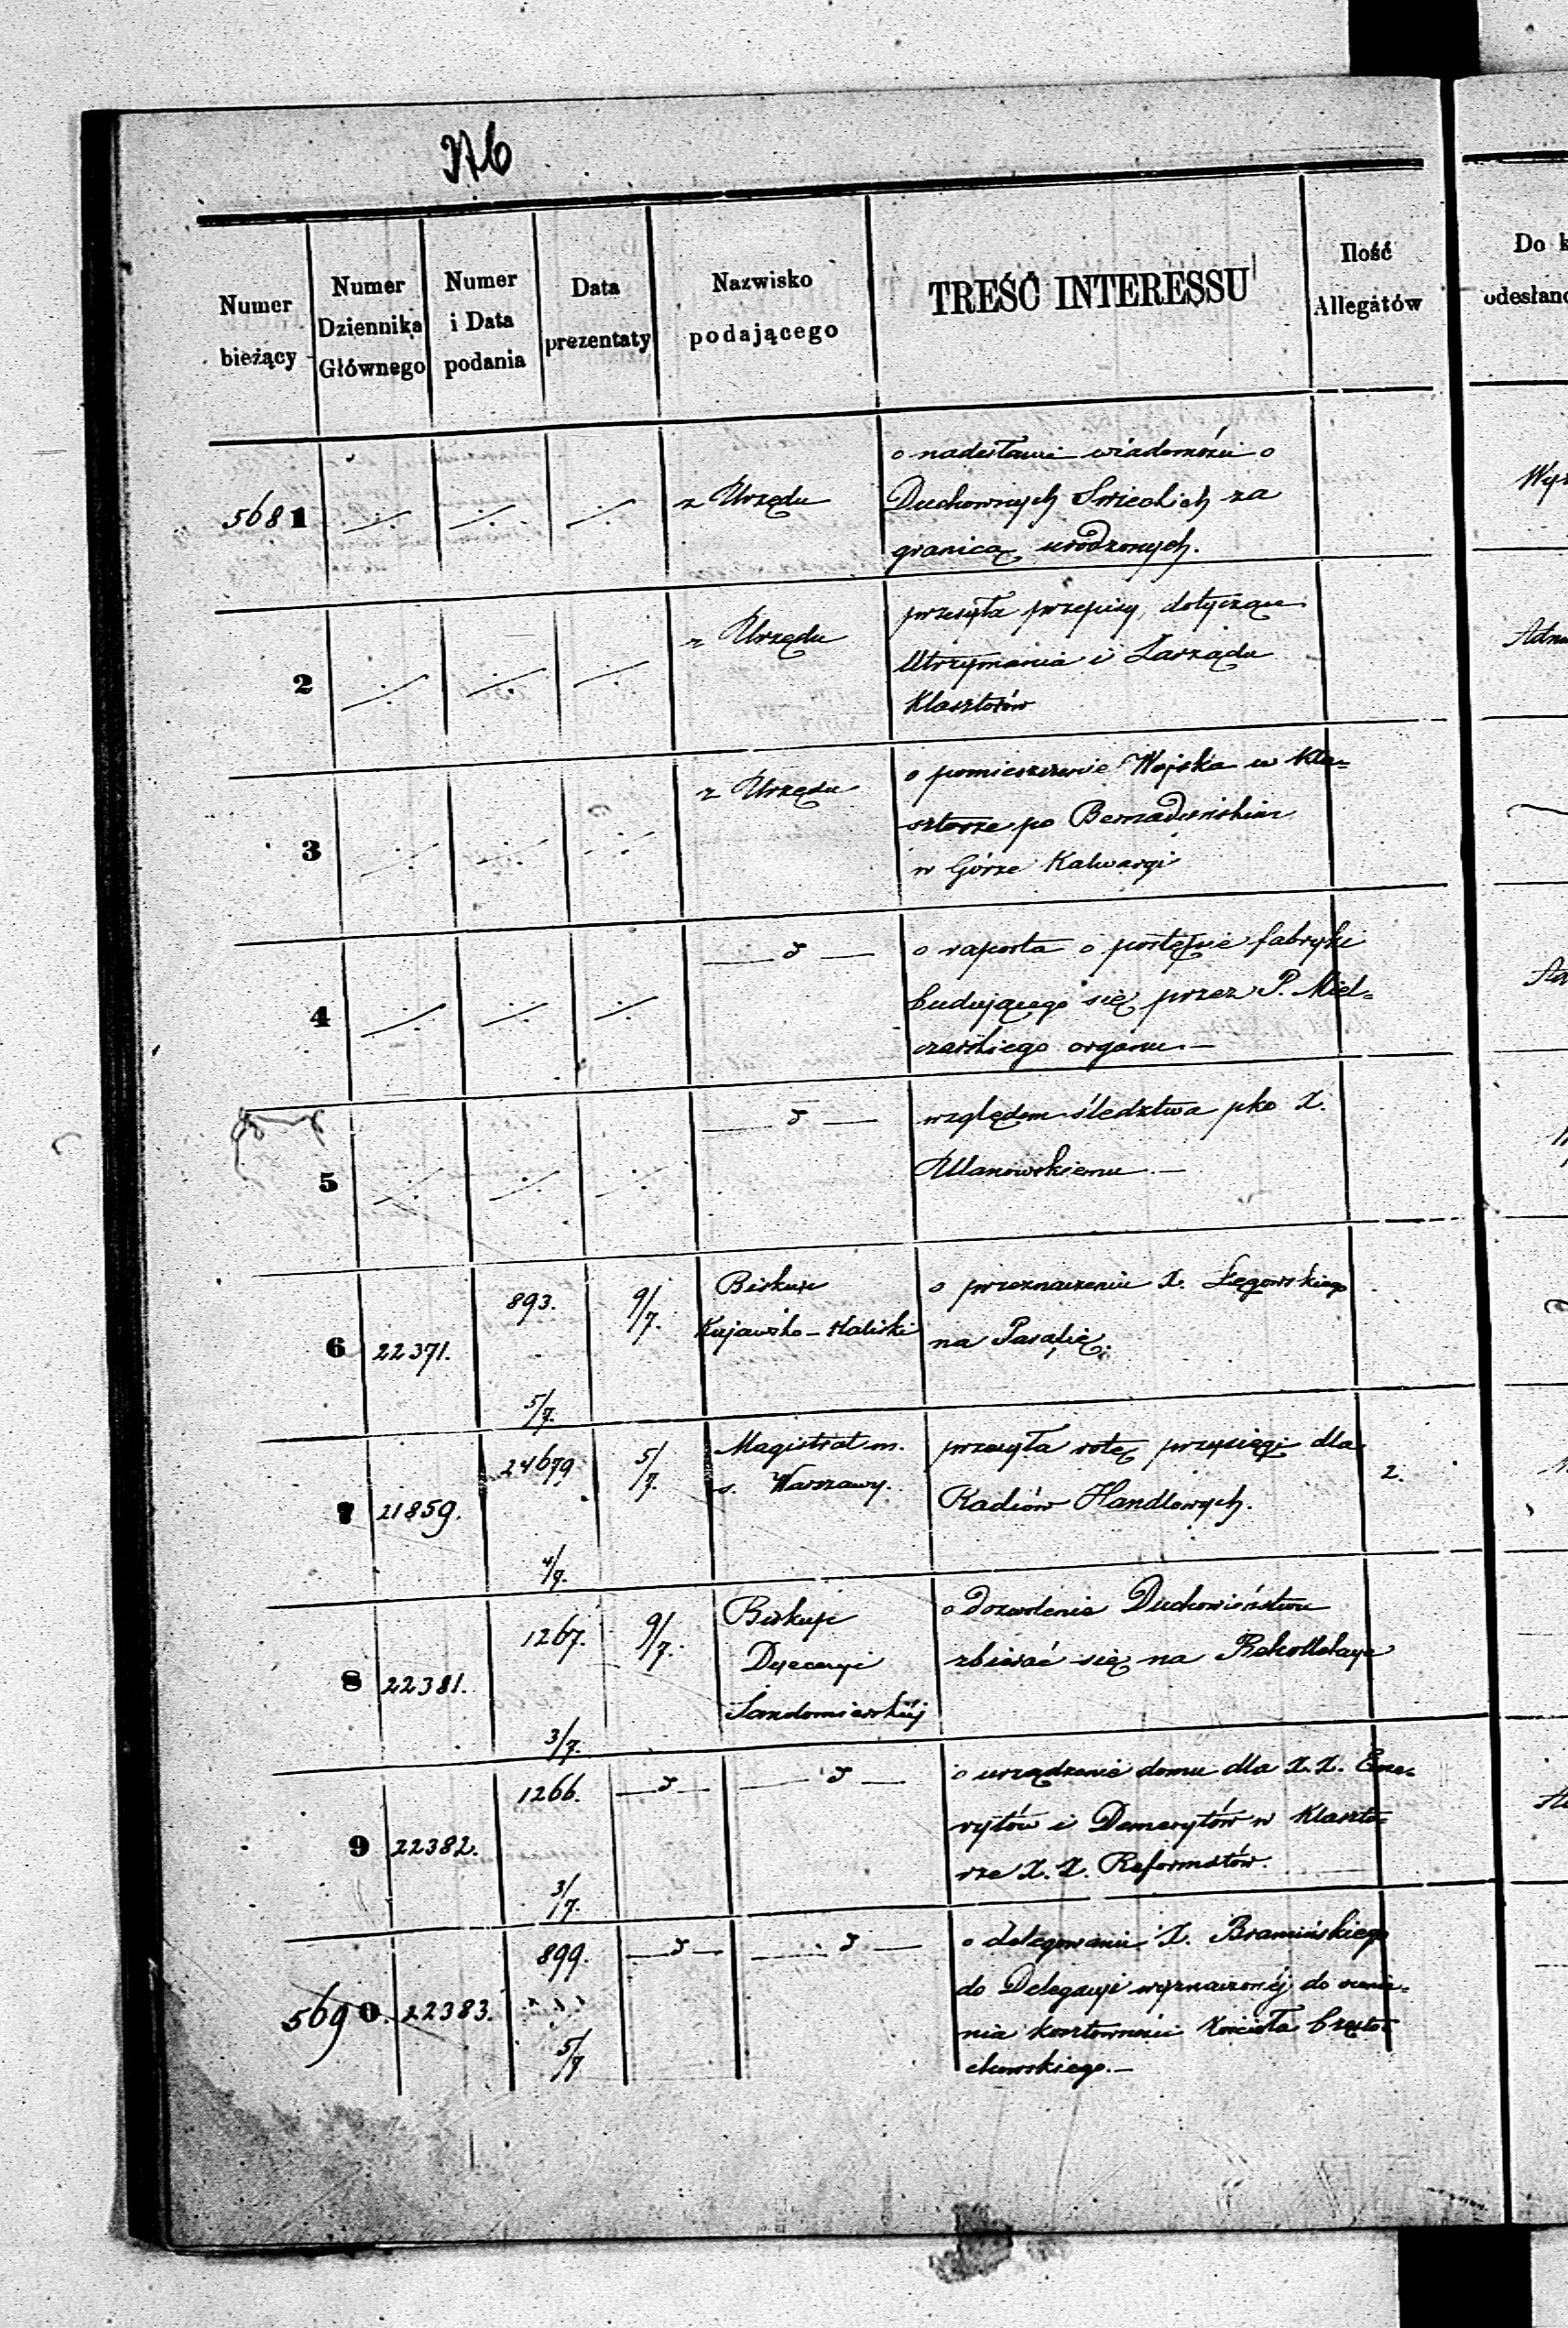 376
Numer bieżący
Numer Dziennika Głównego
Numer i Data podania
Data prezentaty
Nazwisko podającego
TREŚĆ INTERESSU
Ilość Allegatów
Do k
odesłano
5681 ./. ./. ./. z Urzędu
o nadesłanie wiadomości o
Duchownych Swieckich za
granicą urodzonych.
2 ./. ./. ./. z Urzędu
przesyła przepisy, dotyczące
Utrzymania i Zarządu
Klasztorów
3 ./. ./. ./. z Urzędu
o pomieszczenie Wojska w Kla=
sztorze po Bernadyńskim
w Górze Kalwaryi
4 ./. ./. ./. — d —
o raporta o postępie fabryki
budującego się przez P. Miel=
czarskiego organu. —
5 ./. ./. ./. — d —
względem śledztwa pko X.
Ulanowskiemu. —
6 22371. 893. 5/7. 9/7.
Biskup
Kujawsko-Kaliski
o przeznaczeniu X. Łęgowskiego
na Parafię.
7 21859. 24679 4/7. 5/7.
Magistrat m.
s. Warszawy.
przesyła rotę przysięgi dla
Radców Handlowych.
2.
8 22381. 1267. 3/7. 9/7.
Biskup
Dyecezyi
Sandomierskiéj
o dozwolenie Duchowieństwu
zbierać się na Rekollekcye
9 22382. 1266. 3/7. — d — — d —
o urządzenie domu dla X.X. Eme=
rytów i Demerytów w Klaszto=
rze X. X. Reformatów.
5690 22383. 899. 5/7 — d — — d —
o delegowaniu X. Bramińskiego
do Delegacyi wyznaczonéj do ocenie=
nia kosztowności Kościoła Często=
chowskiego. —